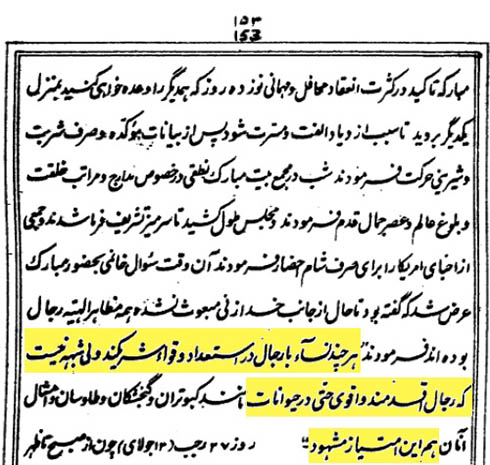 ١٥٣
153
مبارکه تاکید در کثرت انعقاد محافل و مهمانی نوزده روز که همدیگر را وعده خواهی کنید بمنزل
یکدیگر بروید تا سبب ازدیاد الفت و مسرت شود پس از بیانات مؤکده و صرف شربت
و شیرینی حرکت فرمودند شب در مجمع بیت مبارک نطقی در خصوص مدارج و مراتب خلقت
و بلوغ عالم و عصر جمال قدم فرمودند و مجلس طول کشید تا سر میز تشریف فرما شدند و جمعی
از احبای امریکا را برای صرف شام احضار فرمودند آن وقت سؤال خانمی بحضور مبارک
عرض شد که گفته بود تا حال از جانب خدا زنی مبعوث نشده همه مظاهر الهیّه رجال
بوده اند فرمودند "هر چند نسآء با رجال در استعداد و قوا شریکند ولی شبهه نیست
که رجال اقدمند و اقوی حتی در حیوانات مانند کبوتران و گنجشکان و طاوسان و امثال
آنان هم این امتیاز مشهود" روز ٢٧ رجب (١٢ جولای) چون از صبح تا ظهر